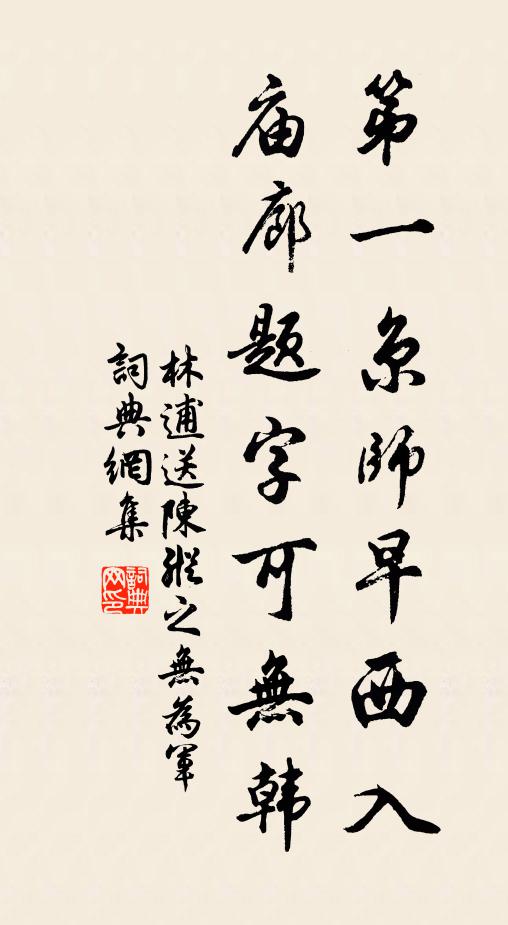 第一京師早西入
庙廊題字可無韩
林逋送陳纵之無為軍
詞典網集
詞典网印